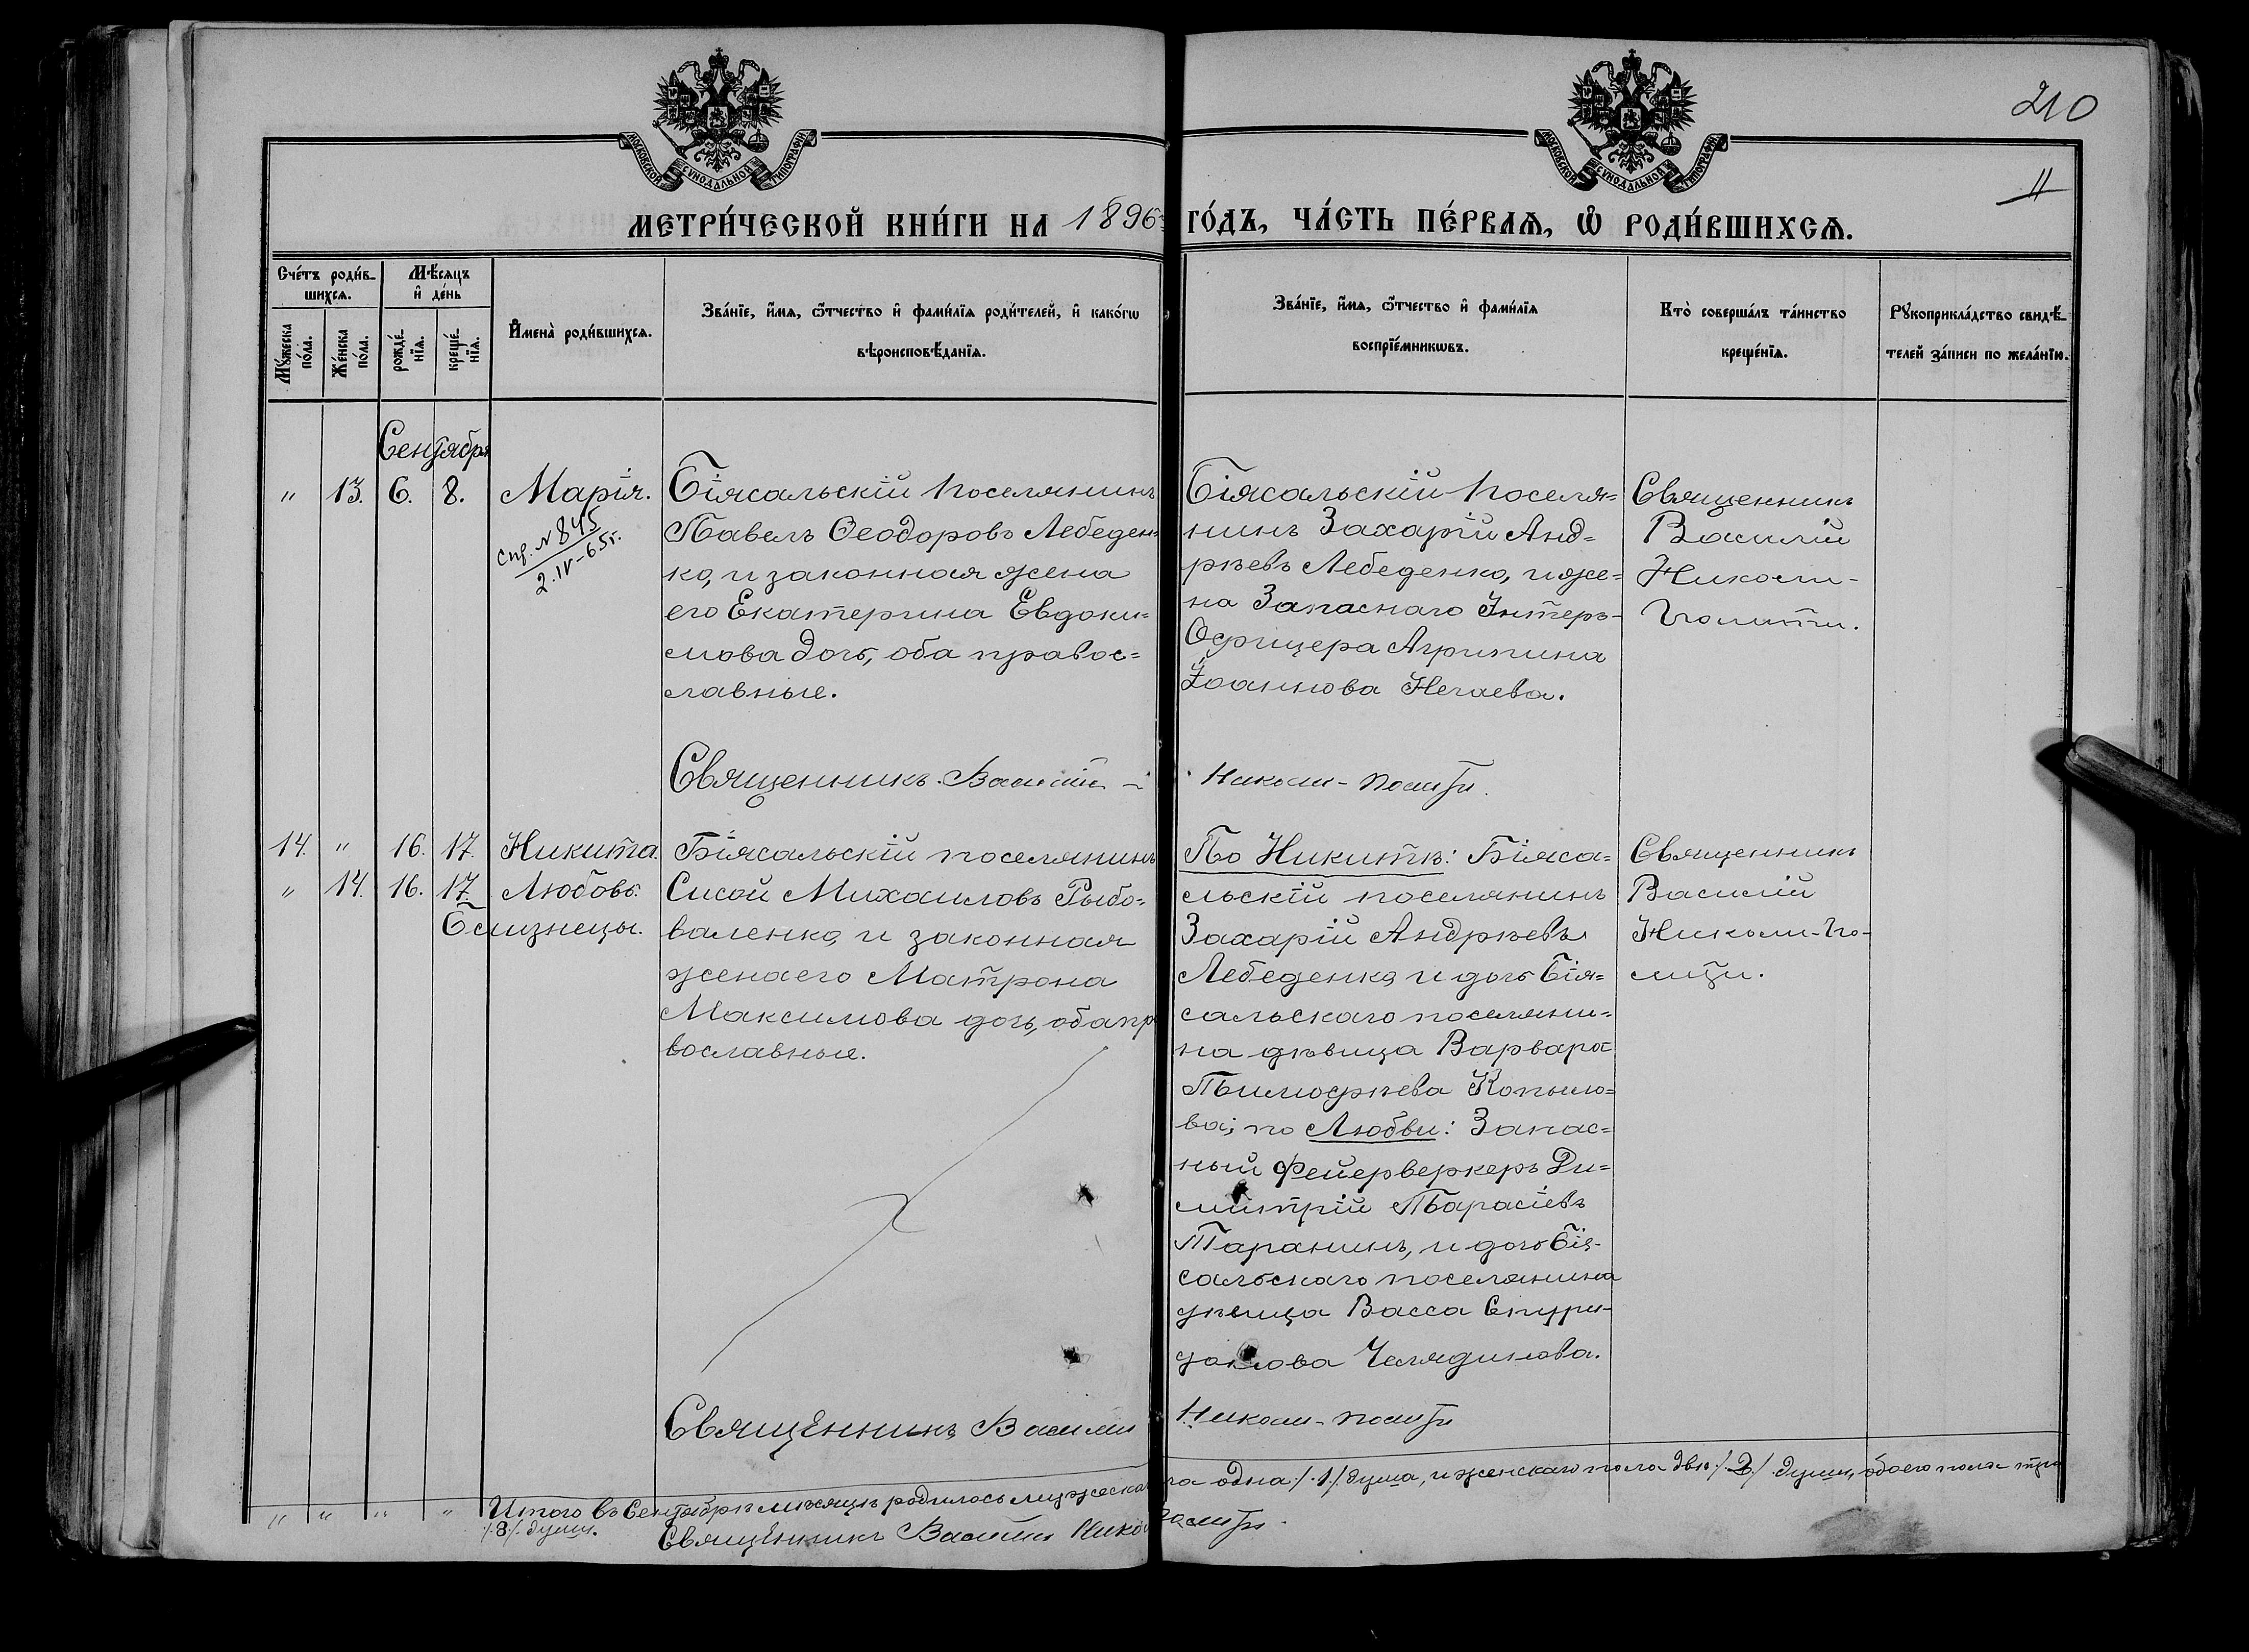 210
11
МОСКОВСКОЙ СѴНОДАЛЬНОЙ ТИПОГРАФІИ
МОСКОВСКОЙ СѴНОДАЛЬНОЙ ТИПОГРАФІИ
МЕТРИ́ЧЕСКОЙ КНИ́ГИ НА 1896 ГО́ДЪ, ЧА́СТЬ ПЕ́РВАѦ, Ѡ҆ РОДИ́ВШИХСѦ.
Сче́тъ роди́в-
шихсѧ.
Мꙋ́жеска
по́ла.
Же́нска
по́ла.
Мѣ́сѧцъ
и҆ де́нь
рожде́-
нїѧ.
креще́-
нїѧ.
И҆мена̀ роди́вшихсѧ.
Зва́нїе, и҆́мѧ, ѻ҆́тчество и҆ фами́лїѧ роди́телей, и҆ како́гѡ
вѣроисповѣ́данїѧ.
Зва́нїе, и҆́мѧ, ѻ҆́тчество и҆ фами́лїѧ
воспрїе́мникѡвъ.
Кто̀ соверша́лъ та́инство
креще́нїѧ.
Рꙋкоприкла́дство свидѣ́-
телей за́писи по жела́нїю.
Сентября
" 13. 6. 8. Марія.
Спр. № 845
2.IV-65г.
Біясальскій поселянинъ
Павелъ Ѳеодоровъ Лебеден-
ко, и законная жена
его Екатерина Евдоки-
мова дочь, оба правос-
лавные.
Біясальскій поселя-
нинъ Захарій Анд-
рѣевъ Лебеденко, и же-
на Запаснаго Унтеръ-
Офицера Агрипина
Іоаннова Нечаева.
Священникъ
Василій
Николи-
Полити.
Священникъ Василій Николи-Полити.
14. " 16. 17. Никита.
" 14. 16. 17. Любовь.
Близнецы.
Біясальскій поселянинъ
Сисой Михаиловъ Рыбо-
валенко, и законная
жена его Матрона
Максимова дочь, оба пр
вославные.
По Никитѣ: Біяса-
льскій поселянинъ
Захарій Андрѣевъ
Лебеденко, и дочь Бія-
сальскаго поселяни-
на дѣвица Варвара
Тимофѣева Копыло-
ва; по Любви: Запас-
ный Фейерверкеръ Ди-
митрій Тарасіевъ
Таранинъ, и дочь Бія-
сальскаго поселянина
дѣвица Васса Спири-
донова Челядинова.
Священникъ
Василій
Николи-По-
лити.
Священникъ Василій Николи-Полити
" " " " Итого въ Сентябрѣ мѣсяцѣ родилось мужеска пола одна /.1./ душа, и женскаго пола двѣ /.2./ души, обоего пола три
/.3./ души.
Священникъ Василій Николи-Полити.